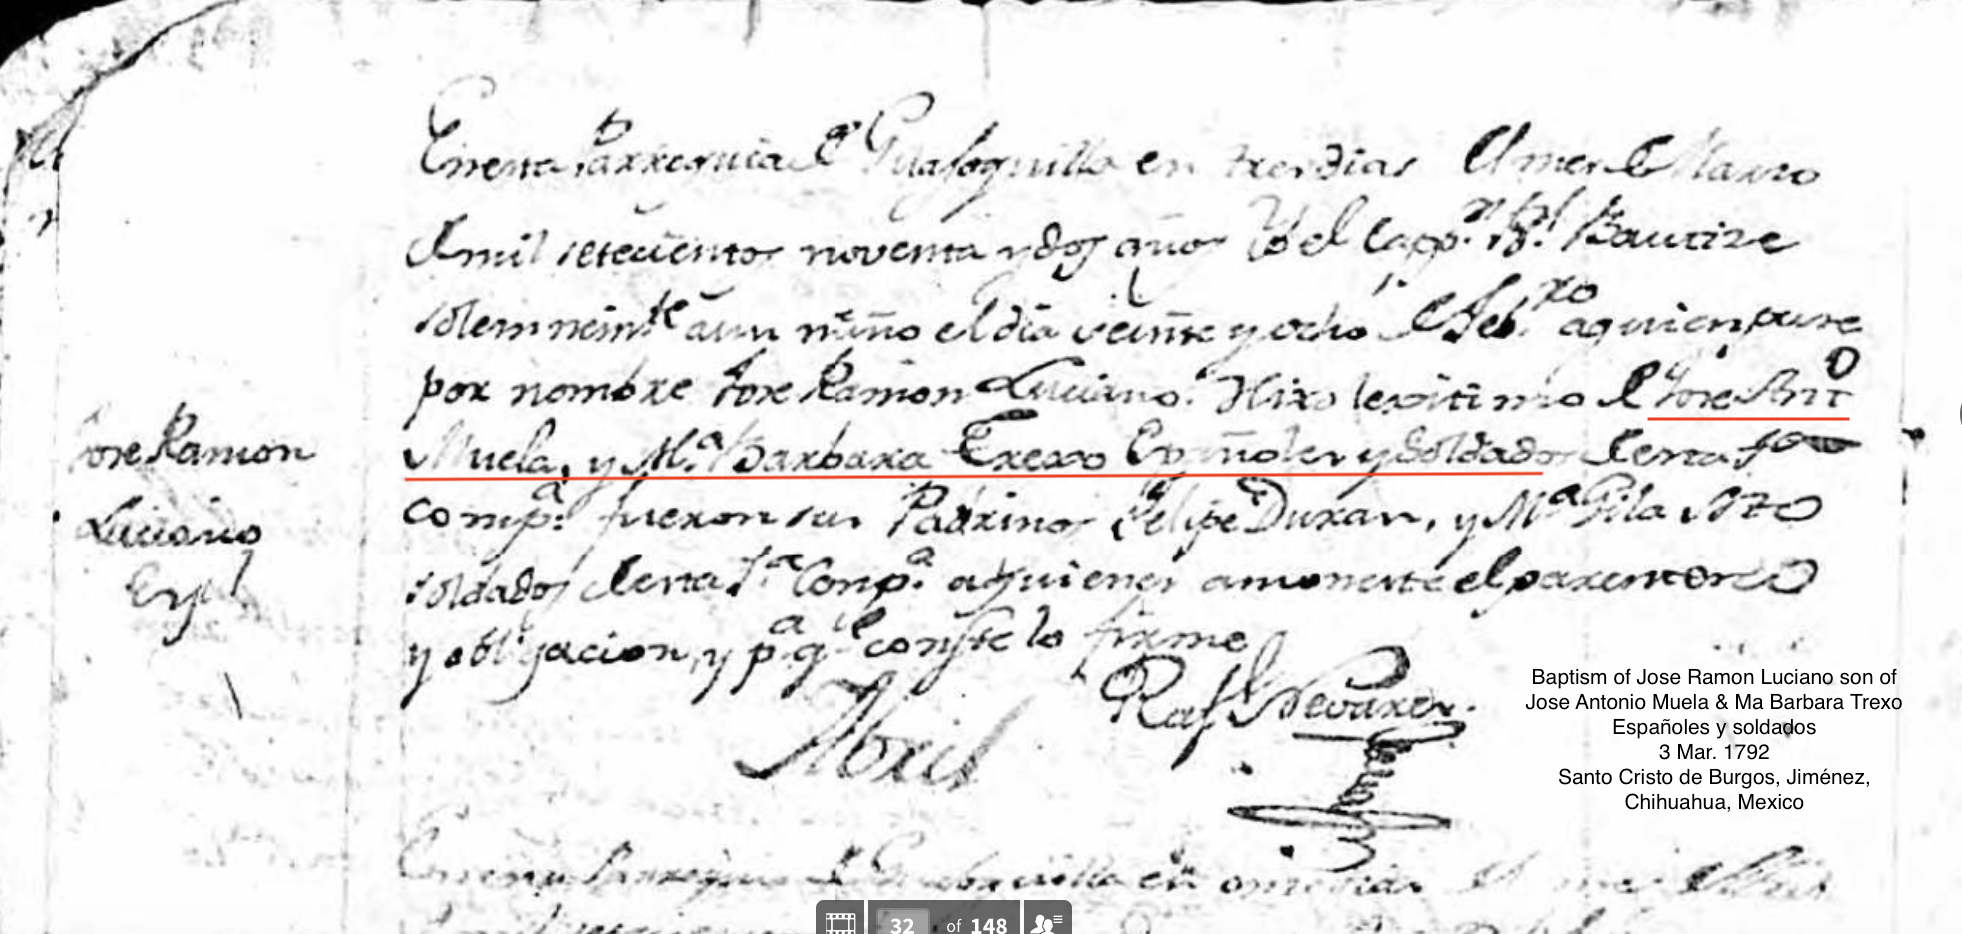 En esta Parroquia de Guajoquilla en tres dias del mes de Marzo
de mil setecientos noventa y dos años Yo el Capp.n R.l Bautize
solemnemte a un niño el dia veinte y ocho de Feb.ro a quien puse
por nombre Jose Ramon Luciano. Hixo lexitimo de Jose Anto
Jose Ramon
Luciano
Muela, y M.a Barbara Trexo Españoles y Soldados de esta
comp.a fueron sus Padrinos Felipe Duran, y Ma Gila
soldados de esta Comp.a a quienes amoneste el parentesco
y obligacion, y pa qe conste lo firme
Rafl Nevarez
Abril
Baptism of Jose Ramon Luciano son of
Jose Antonio Muela & Ma Barbara Trexo
Españoles y soldados
3 Mar. 1792
Santo Cristo de Burgos, Jiménez,
Chihuahua, Mexico
En esta Parroquia de Guajoquilla en
32 of 148